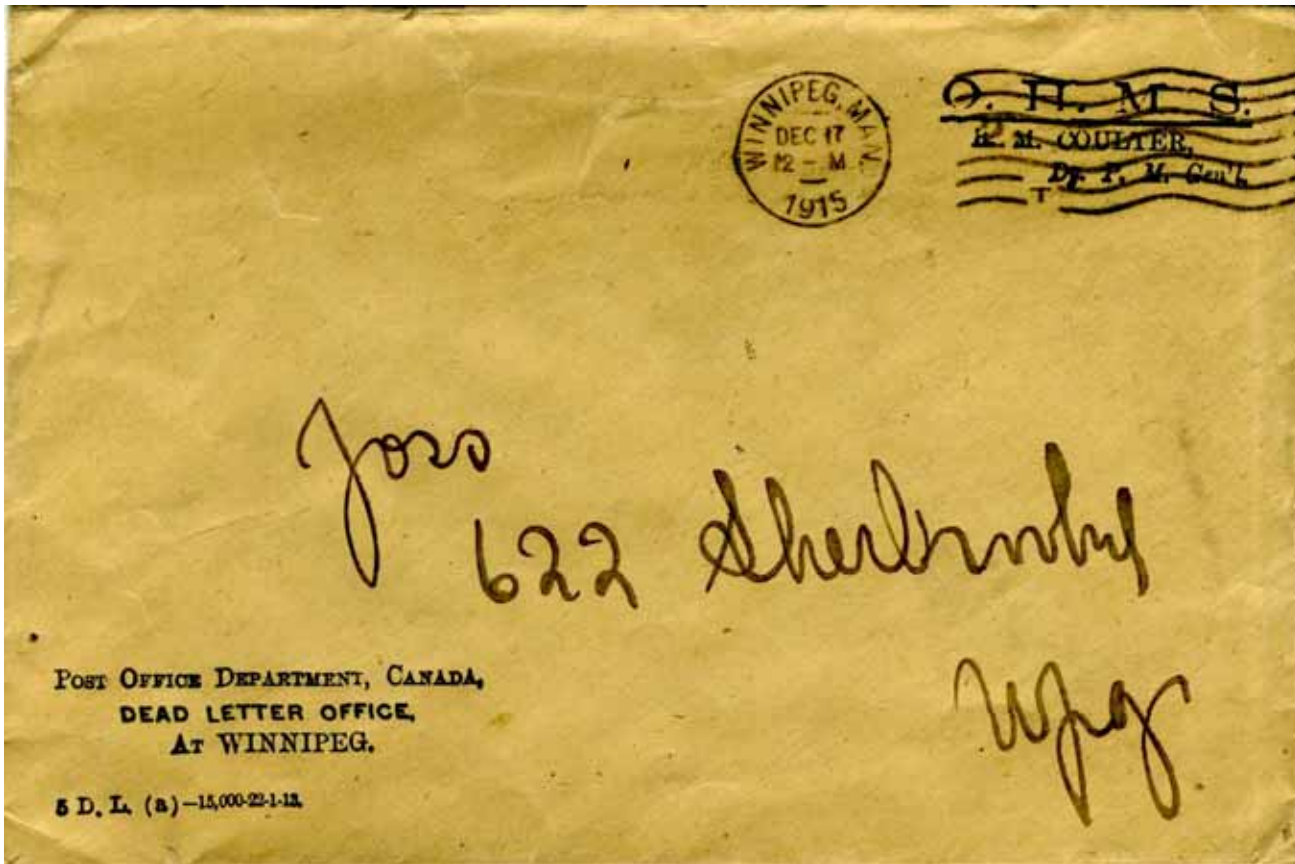 WINNIPEG, MAN.
DEC 17
12 - M
1915
O. H. M. S.
R. M. COULTER,
Dy. P. M. Gen'l.
T
Joss
622 Sherbrooke
Wpg
POST OFFICE DEPARTMENT, CANADA,
DEAD LETTER OFFICE,
AT WINNIPEG.
5 D. L. (a)—15,000-22-1-13.